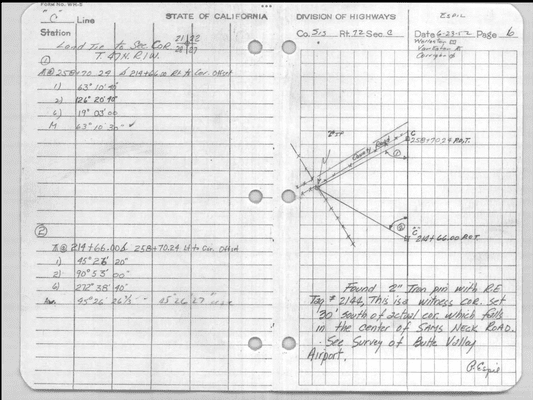 Form No. WH-2
"C" Line
STATE OF CALIFORNIA
Station
Land Tie to Sec. COR 21|22
28|27
T.47N. R1W.
①
⊼@258+70.24 ∆ 214+66.00 Rt to Cor. Offset
1) 63° 10' 40"
2) 126° 20' 40"
6) 19° 03' 00
M 63° 10' 30"
②
⊼@ 214+66.00 ∆ 258+70.24 Lt to Cor. Offset
1) 45° 26' 20"
2) 90° 53' 00"
6) 272° 38' 40"
45° 26' 26½" 45° 26' 27"
DIVISION OF HIGHWAYS
ESPIL
Co. Sis Rt. 72 Sec. C Date 6-23-52 Page 6
County Road
"C"
258+70.24 P.O.T.
①
②
"C"
214+66.00 P.O.T.
Found 2" Iron pin with R.E.
Tag # 2144, This is a witness cor. set
30' south of actual cor. which falls
in the center of SAMS NECK ROAD.
See Survey of Butte Valley
Airport.
P. Espil